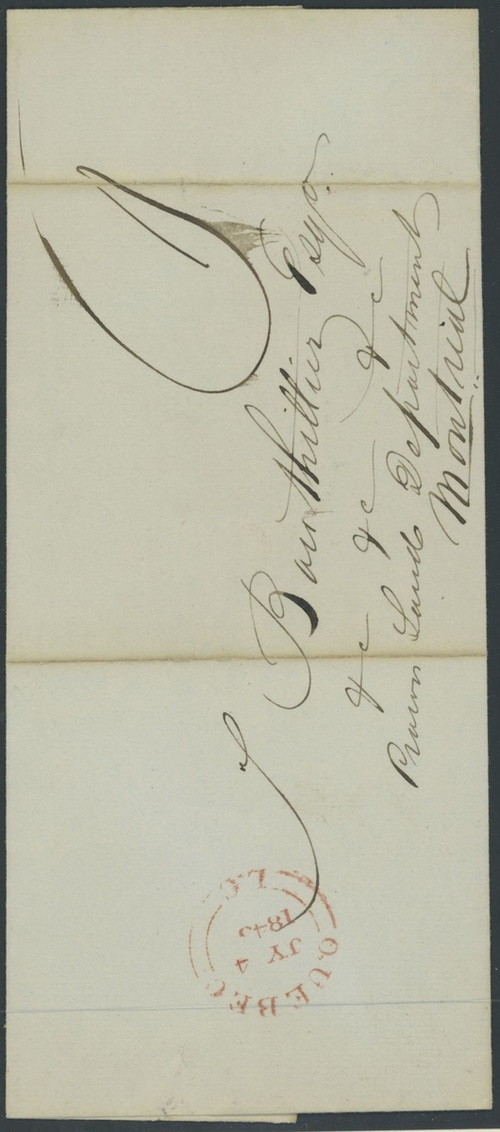 T Bouthillier Esqr.
&c &c &c
Crown Land Department
Montreal
QUEBEC
JY 4
1845
L.C.